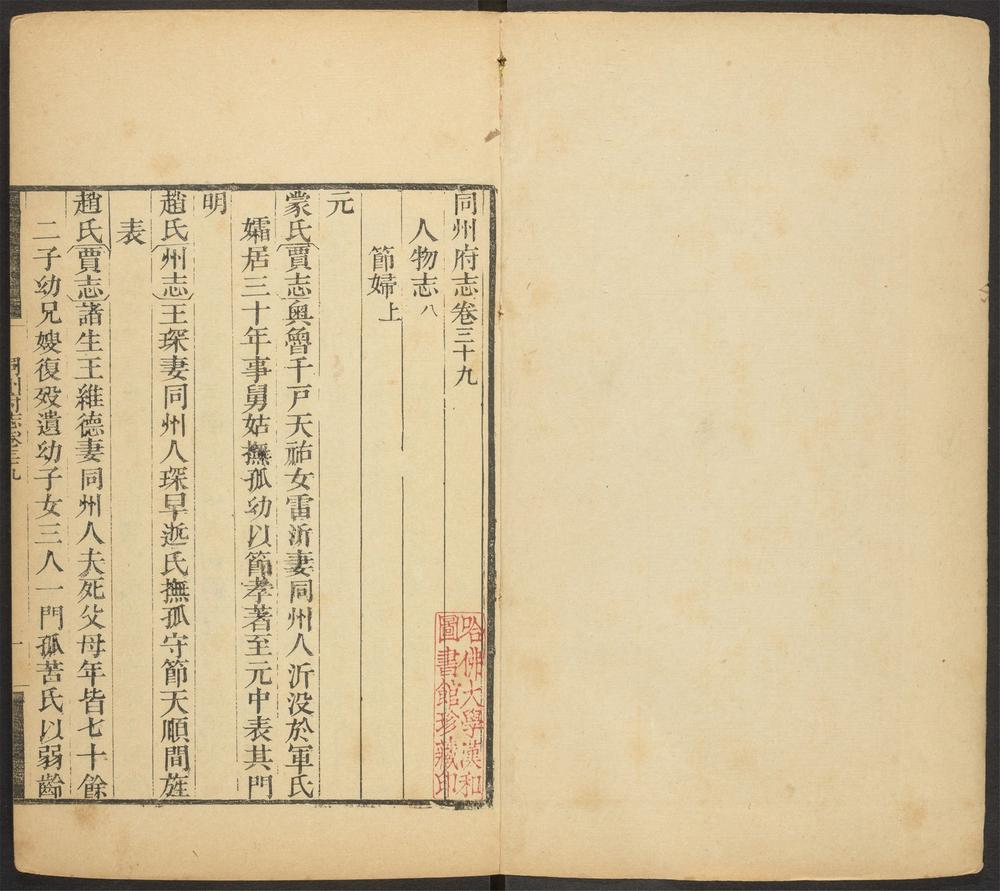 同州府志卷三十九
人物志八
節婦上
元
蒙氏賈志奧魯千戸天祐女雷沂妻同州人沂没於軍氏
孀居三十年事舅姑撫孤幼以節孝著至元中表其門
明
趙氏州志王琛妻同州人琛早逝氏撫孤守節天順間旌
表
趙氏賈志諸生王維德妻同州人夫死父母年皆七十餘
二子幼兄嫂復殁遺幼子女三人一門孤苦氏以弱齡
同州府志卷三十九
一
哈佛大學漢和
圖書館珍藏印